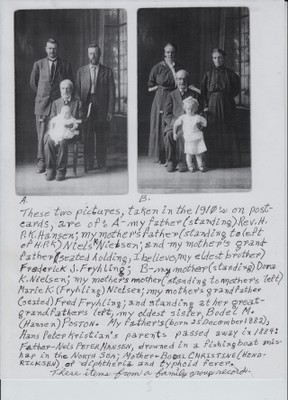 A.
B.
These two pictures, taken in the 1910's on post-
cards, are of: A- my father (standing) Rev. H.
P.K. Hansen; my mother's father (standing to left
of H.P.K) Niels Nielsen; and my mother's grand
father (seated holding, I believe, my eldest brother)
Frederick J. Fryhling; B- my mother (standing) Dora
K. Nielsen; my mother's mother (standing to mother's left)
Marie K (Fryhling) Nielsen; my mother's grandfather
(seated) Fred Fryhling; and standing at her great-
grandfathers left, my oldest sister, Bodel M.
(Hansen) Poston. My father's (born 25 December 1882),
Hans Peter Kristian's parents passed away in 1884:
Father-Niels Peter Hansen, drowned in a fishingboat mis-
hap in the North Sea; Mother-Bodil Christine (Hend-
ricksen) of diphtheria and typhoid fever.
These items from a family group record.